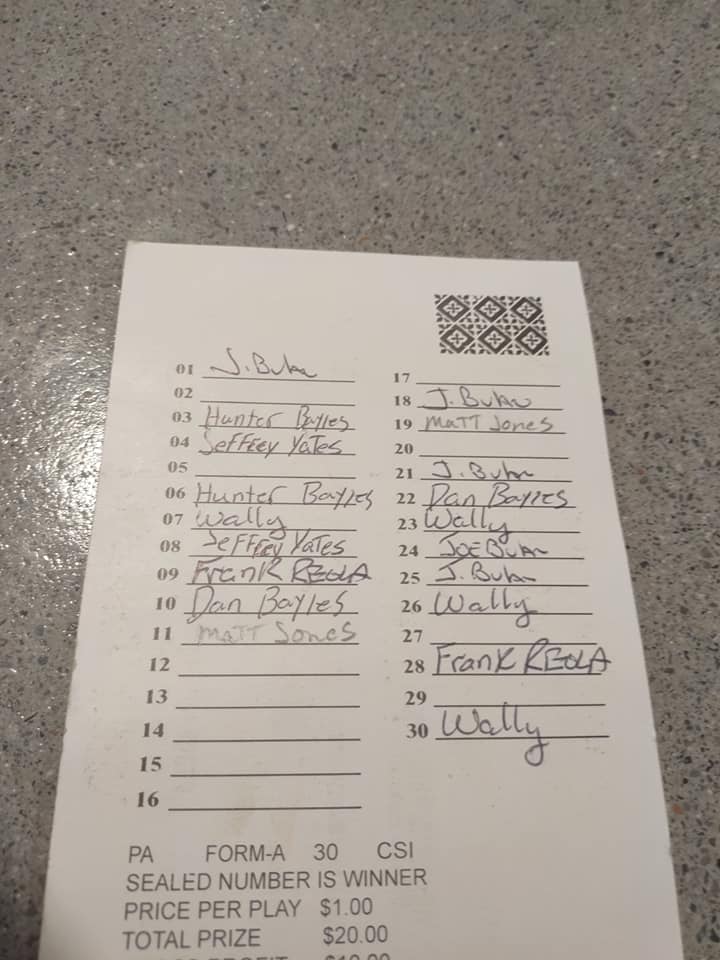 01 J. Bukr
02
03 Hunter Bayles
04 Jeffrey Yates
05
06 Hunter Bayles
07 Wally
08 Jeffrey Yates
09 Frank REOLA
10 Dan Bayles
11 MaTT Jones
12
13
14
15
16
17
18 J.
19 MaTT Jones
20
21 J.
22 Dan Bayles
23 Wally
24 JOE
25 J.
26 Wally
27
28 Frank REOLA
29
30 Wally
PA FORM-A 30 CSI
SEALED NUMBER IS WINNER
PRICE PER PLAY $1.00
TOTAL PRIZE $20.00